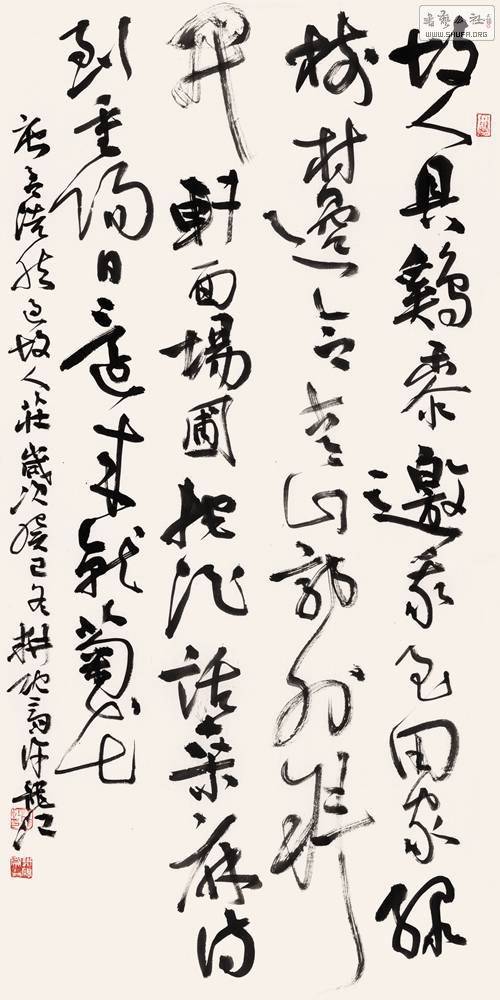 書藝公社
WWW.SHUFA.ORG
故人具鷄黍邀我至田家緑
樹村邊合青山郭外斜
开軒面場圃把酒話桑麻待
到重陽日還來就菊花
唐孟浩然過故人莊歲次癸巳冬耕許龍江